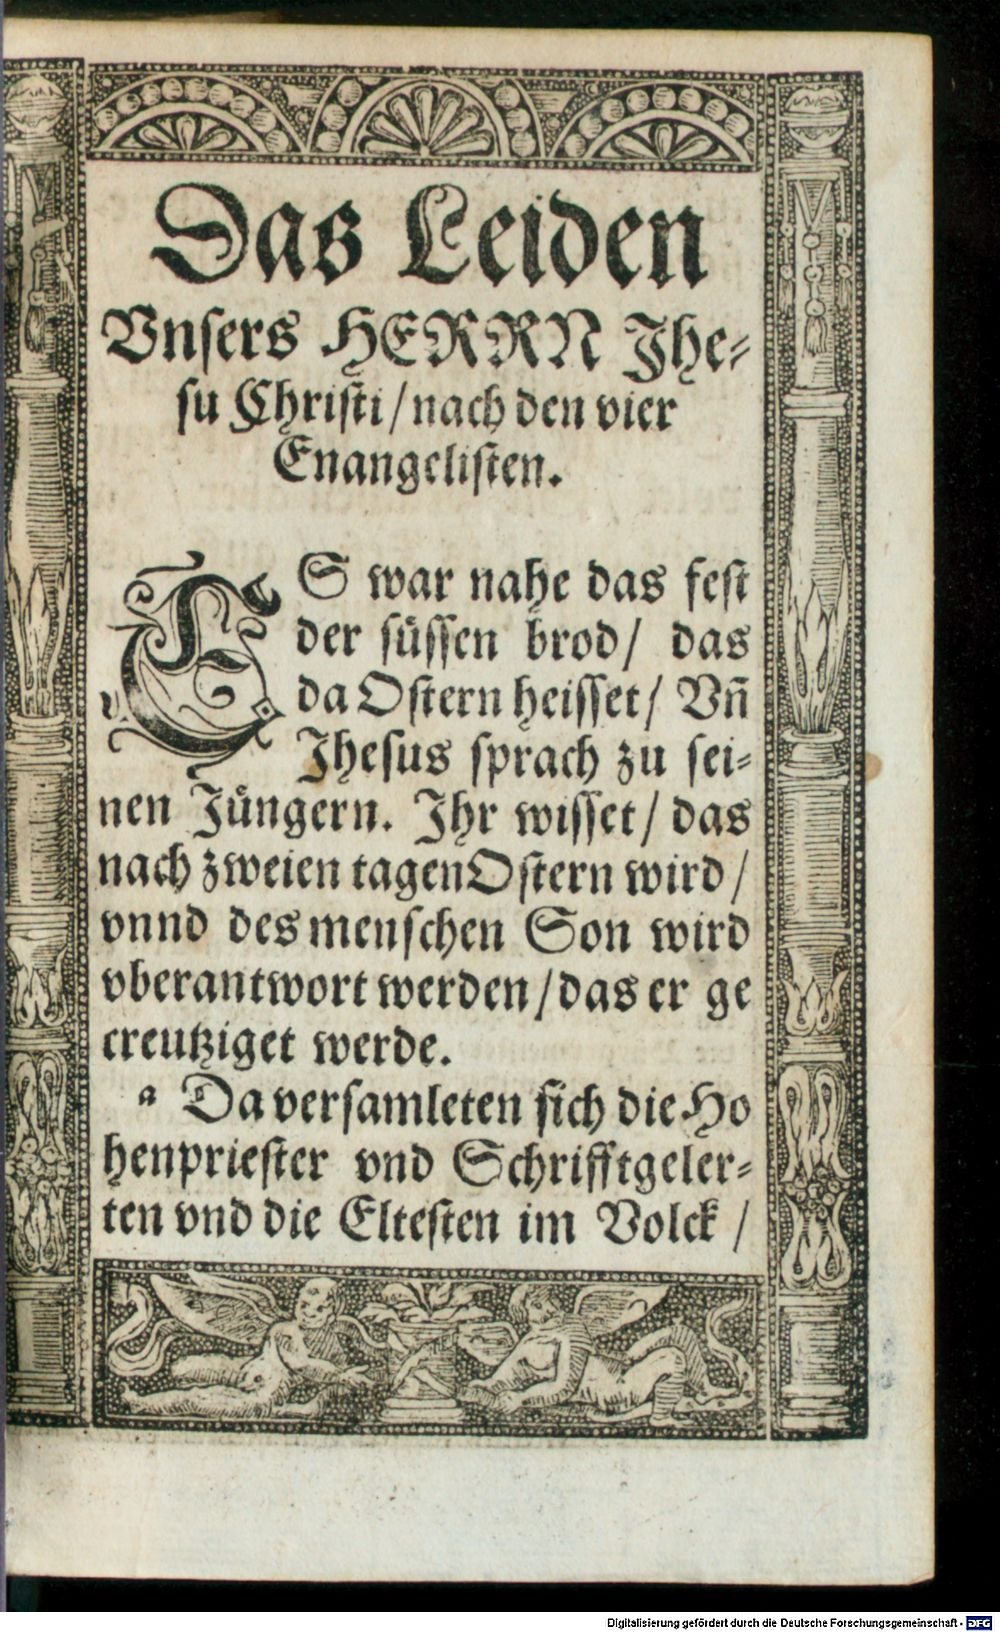 Das Leiden
Vnsers HERRN Jhe-
su Christi / nach den vier
Enangelisten.
ES war nahe das fest
der süssen brod / das
da Ostern heisset / Vñ
Jhesus sprach zu sei-
nen Jüngern. Jhr wisset / das
nach zweien tagen Ostern wird /
vnnd des menschen Son wird
vberantwort werden / das er ge
creutziget werde.
a Da versamleten sich die Ho
henpriester vnd Schrifftgeler-
ten vnd die Eltesten im Volck /
Digitalisierung gefördert durch die Deutsche Forschungsgemeinschaft - DFG